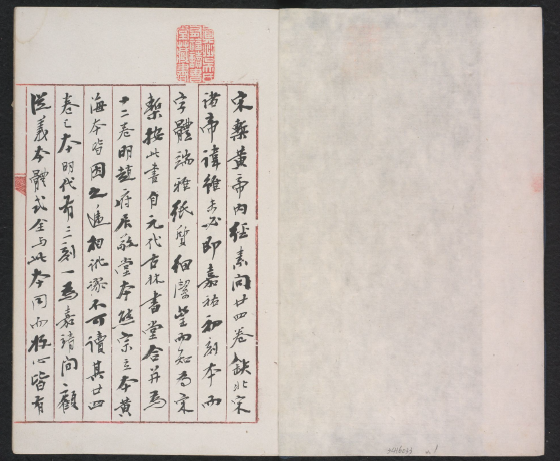 宋槧黃帝內經素問廿四卷缺北宋
諸帝諱雖未必即嘉祐初刻本而
字體端雅紙質細潔望而知為宋
槧按此書自元代古林書堂合并為
十二卷明趙府居敬堂本熊宗立本黃
海本皆因之遞相訛謬不可讀其廿四
卷之本明代有三刻一為嘉靖間顧
從義本體式全與此本同而板心皆有